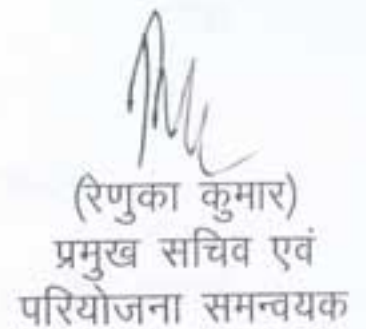 (रेणुका कुमार)
प्रमुख सचिव एवं
परियोजना समन्वयक